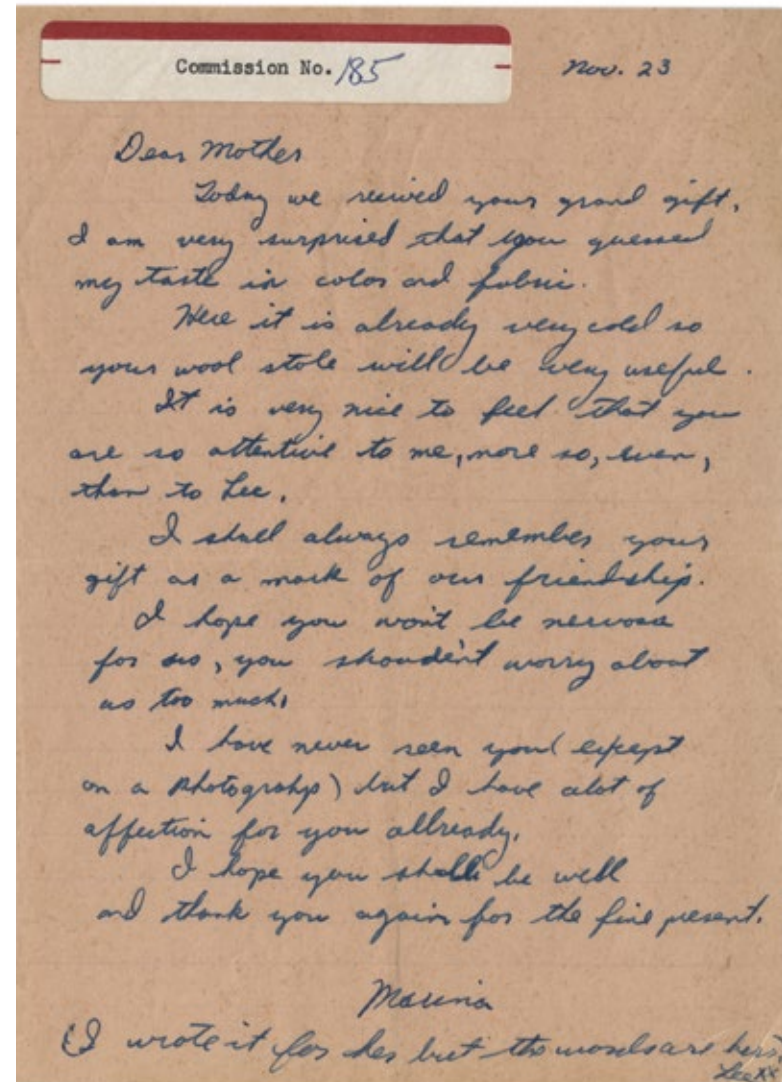 Commission No. 185
Nov. 23
Dear Mother
Today we reeived your grand gift.
I am very surprised that you guessed
my taste in color and fabric.
Here it is already very cold so
your wool stole will be very useful.
It is very nice to feel that you
are so attentive to me, more so, even,
than to Lee.
I shall always remember your
gift as a mark of our friendship.
I hope you won't be nervose
for us, you shoudent worry about
us too much.
I have never seen you (expept
on a photograhp) but I have alot of
affection for you allready.
I hope you shall be well
and thank you again for the fine present.
Marina
(I wrote it for her but the words are hers.
Lee XX